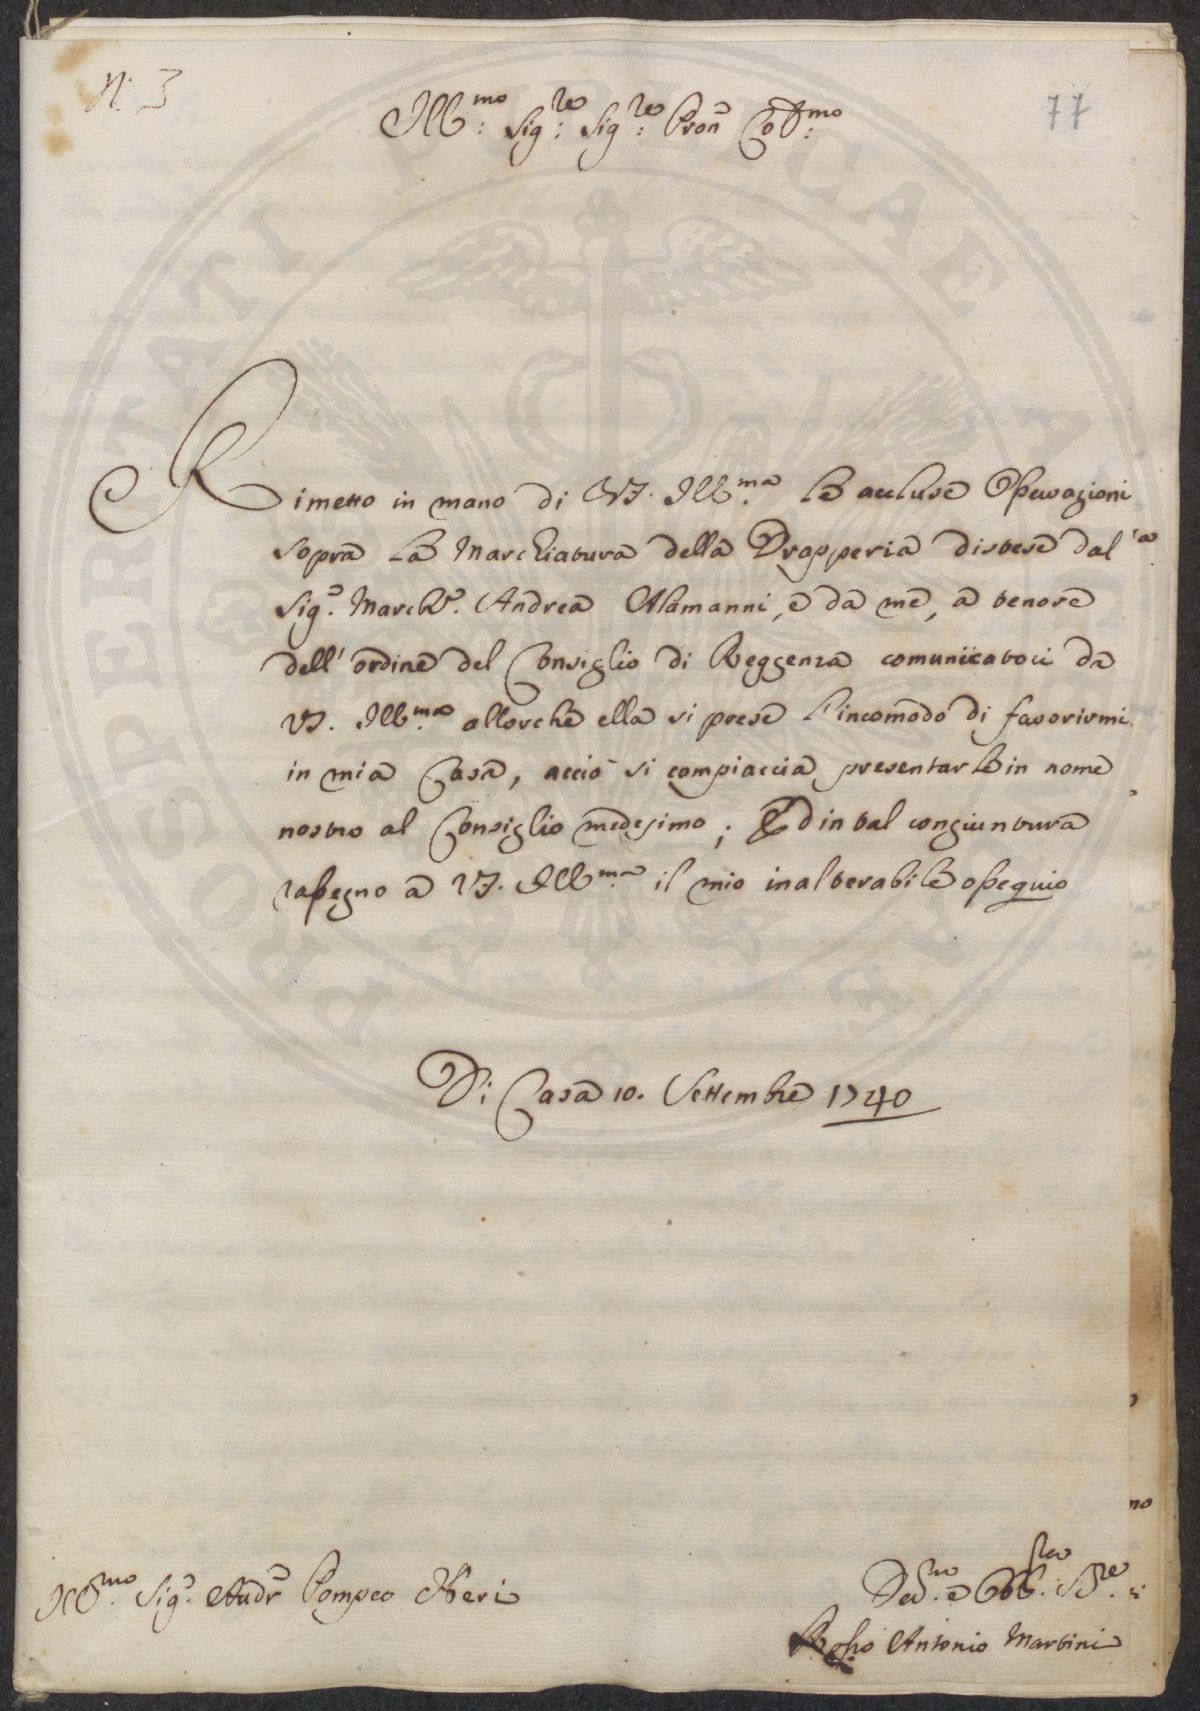 N. 3
77
Ill:mo Sig:re Sig:re Pron Col:mo
Rimetto in mano di VS. Ill.ma le accluse Operazioni
sopra la Marchiatura della Drapperia distese dal
Sig.e March.e Andrea Alamanni, e da me, a tenore
dell' ordine del Consiglio di Reggenza comunicatoci da
VS. Ill.ma allorche ella si prese l'incomodo di favorirmi
in mia Casa, acciò si compiaccia presentarle in nome
nostro al Consiglio medesimo; Ed in tal congiuntura
rassegno a VS. Ill.ma il mio inalterabile ossequio
Di Casa 10. Settembre 1740
Ill.mo Sig.e Aud.r Pompeo Neri
Dev.mo e Obb. Ser.re
Antonio Martini
PROSPERITATI PUBLICAE AUGENDAE